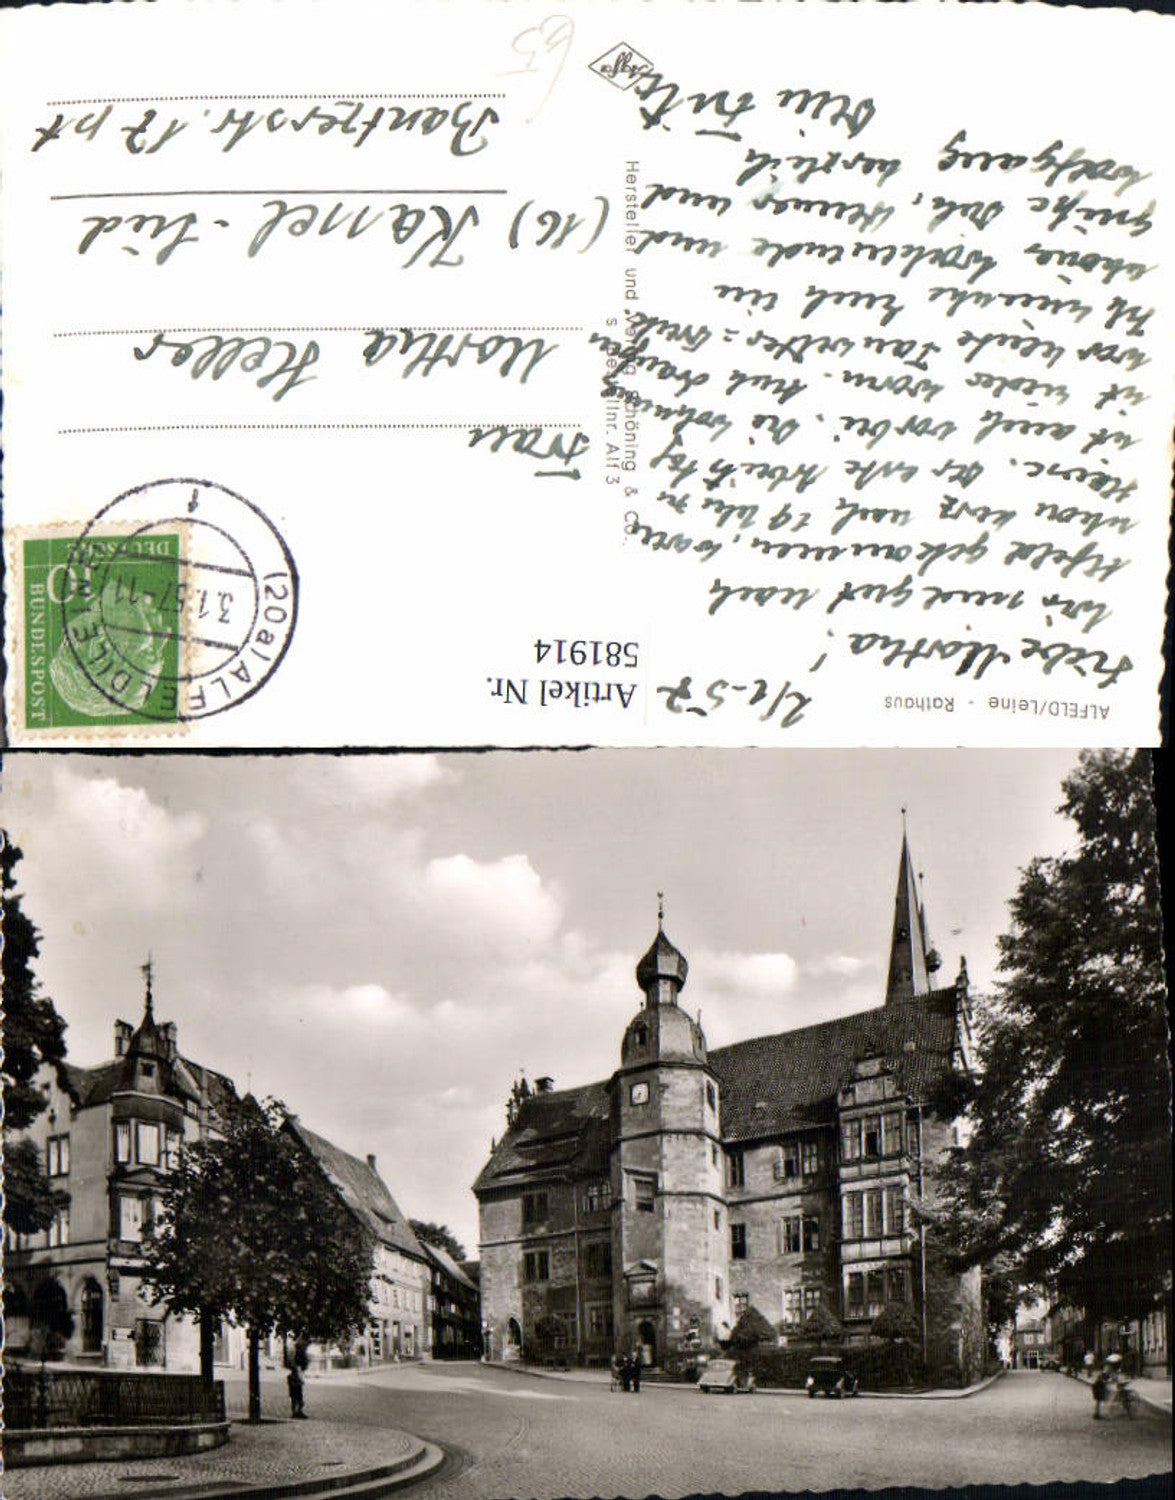 ALFELD/Leine - Rathaus
2/1-57
Liebe Martha!
Wir sind gut nach
Alfeld gekommen, waren
schon kurz nach 19 Uhr zu
Hause. Der erste Arbeitstag
ist auch vorbei. Die Wohnung
ist wieder warm. Auch draußen
war heute Tauwetter
Ich wünsche Euch ein
schönes Wochenende und
grüße Dich, und
Wolfgang herzlich
Agfa
Hersteller und Verlag Schöning & Co.
s Bestellnr. Alf 3
Artikel Nr.
581914
DEUTSCHE
BUNDESPOST
10
(20a) ALFELD (LEINE)
3.1.57-11
f
Frau
Martha Heller
(16) Kassel-Süd
Bantzerstr. 17 pt
65